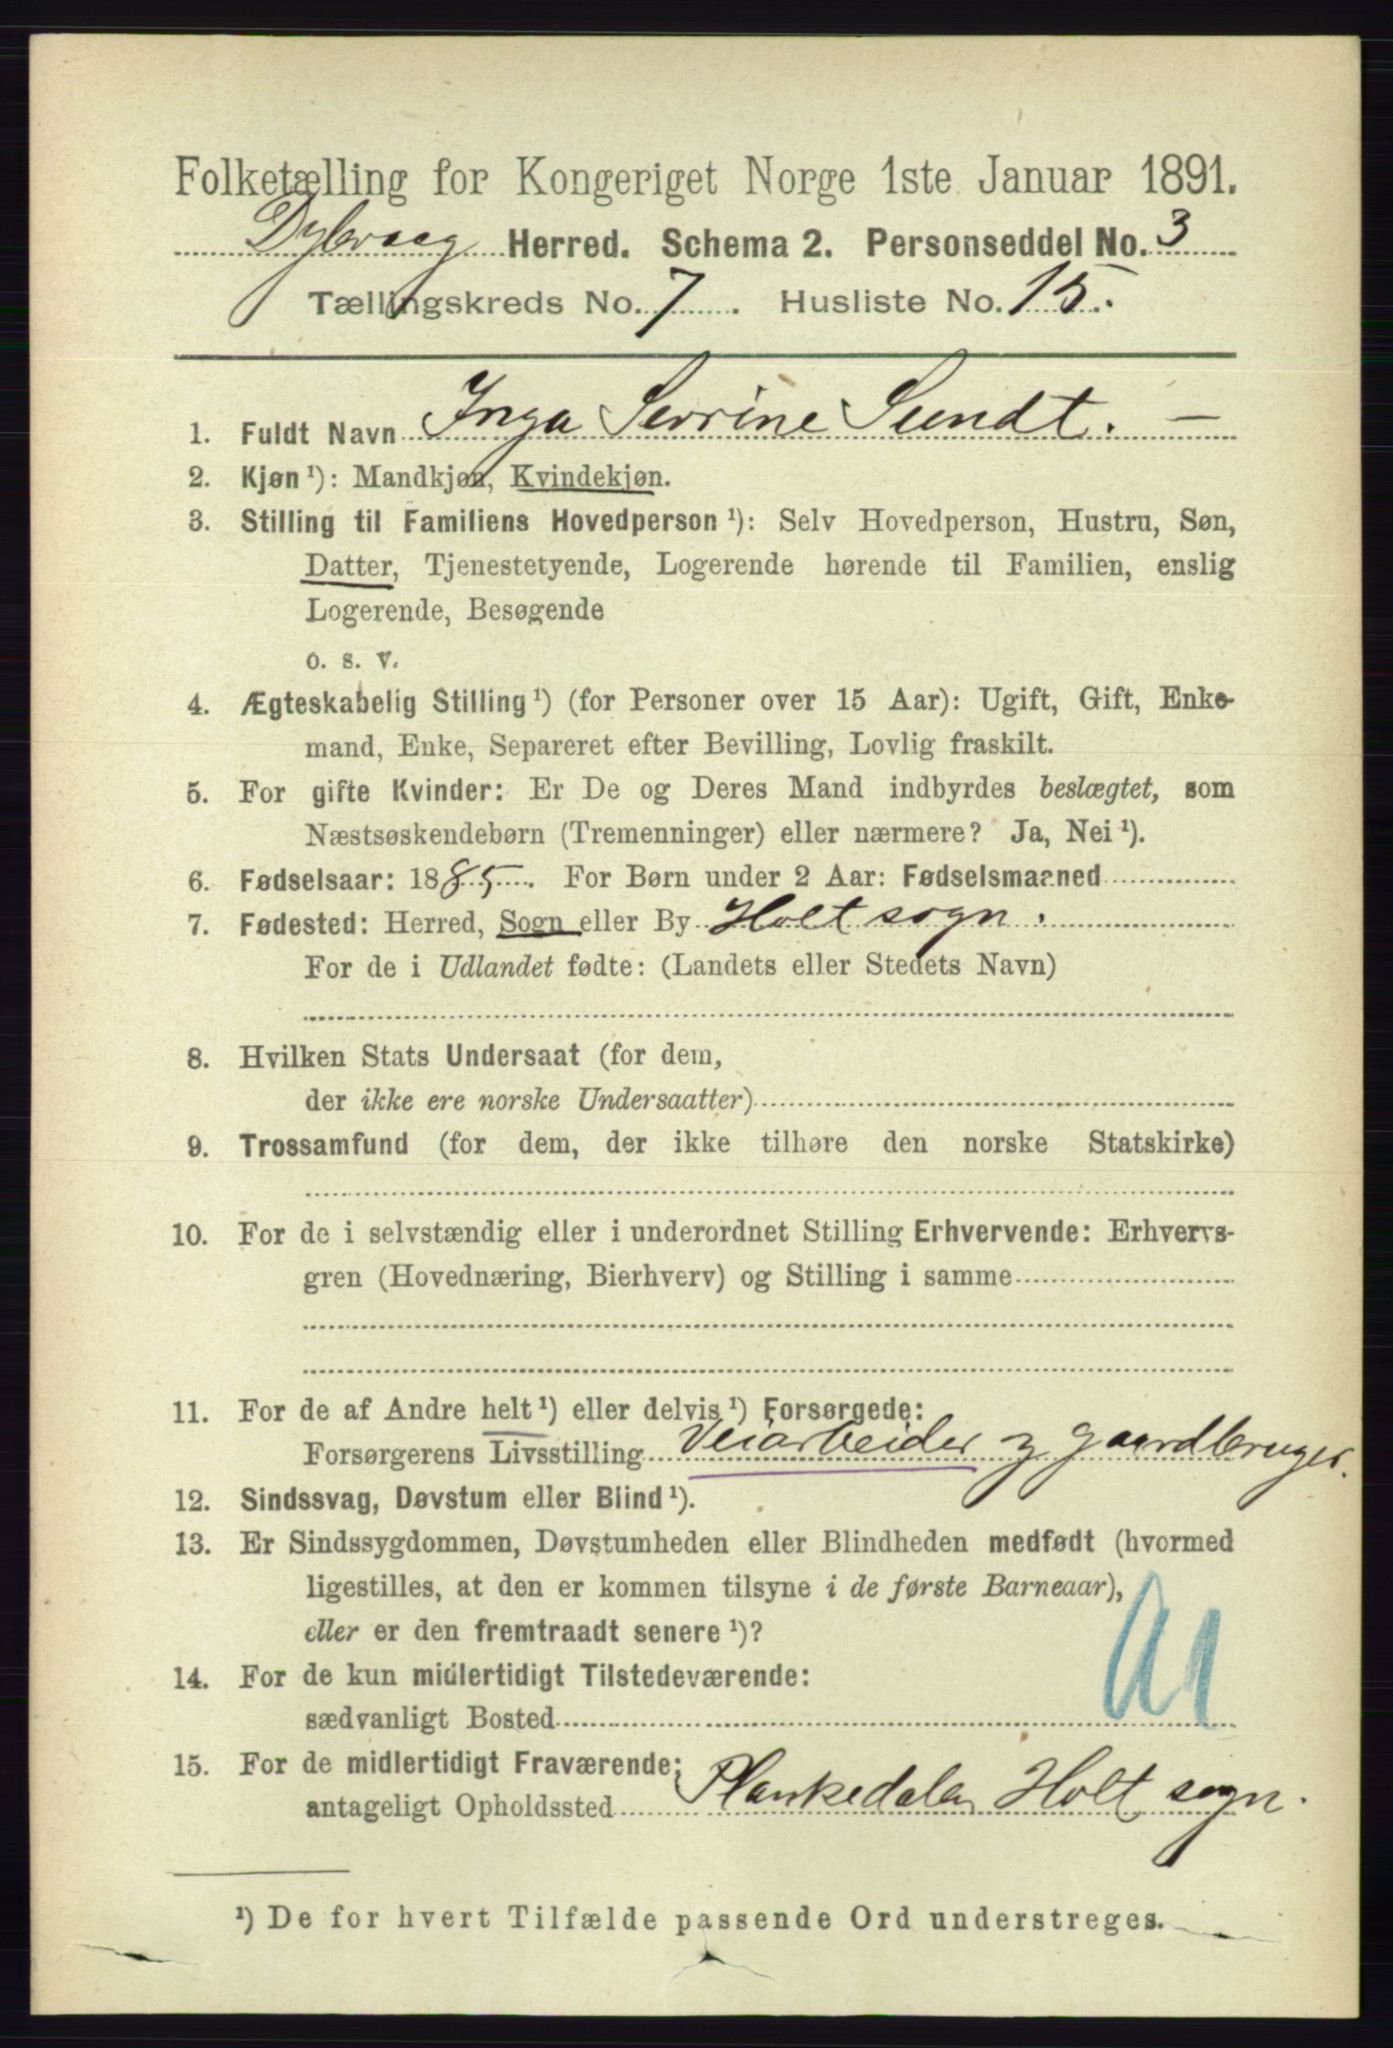 Folketælling for Kongeriget Norge 1ste Januar 1891.
Dybvaag Herred. Schema 2. Personseddel No. 3
Tællingskreds No. 7. Husliste No. 15.
1. Fuldt Navn Inga Serine Sundt. —
2. Kjøn ¹): Mandkjøn, Kvindekjøn.
3. Stilling til Familiens Hovedperson ¹): Selv Hovedperson, Hustru, Søn,
Datter, Tjenestetyende, Logerende hørende til Familien, enslig
Logerende, Besøgende
o. s. v.
4. Ægteskabelig Stilling ¹) (for Personer over 15 Aar): Ugift, Gift, Enke-
mand, Enke, Separeret efter Bevilling, Lovlig fraskilt.
5. For gifte Kvinder: Er De og Deres Mand indbyrdes beslægtet, som
Næstsøskendebørn (Tremenninger) eller nærmere? Ja, Nei ¹).
6. Fødselsaar: 1885. For Børn under 2 Aar: Fødselsmaaned
7. Fødested: Herred, Sogn eller By Holt sogn.
For de i Udlandet fødte: (Landets eller Stedets Navn)
8. Hvilken Stats Undersaat (for dem,
der ikke ere norske Undersaatter)
9. Trossamfund (for dem, der ikke tilhøre den norske Statskirke)
10. For de i selvstændig eller i underordnet Stilling Erhvervende: Erhvervs-
gren (Hovednæring, Bierhverv) og Stilling i samme
11. For de af Andre helt ¹) eller delvis ¹) Forsørgede:
Forsørgerens Livsstilling Veiarbeider og gaardbruger.
12. Sindssvag, Døvstum eller Blind ¹).
13. Er Sindssygdommen, Døvstumheden eller Blindheden medfødt (hvormed
ligestilles, at den er kommen tilsyne i de første Barneaar),
eller er den fremtraadt senere ¹)?
14. For de kun midlertidigt Tilstedeværende:
sædvanligt Bosted
15. For de midlertidigt Fraværende:
antageligt Opholdssted Plankedalen Holt sogn.
¹) De for hvert Tilfælde passende Ord understreges.